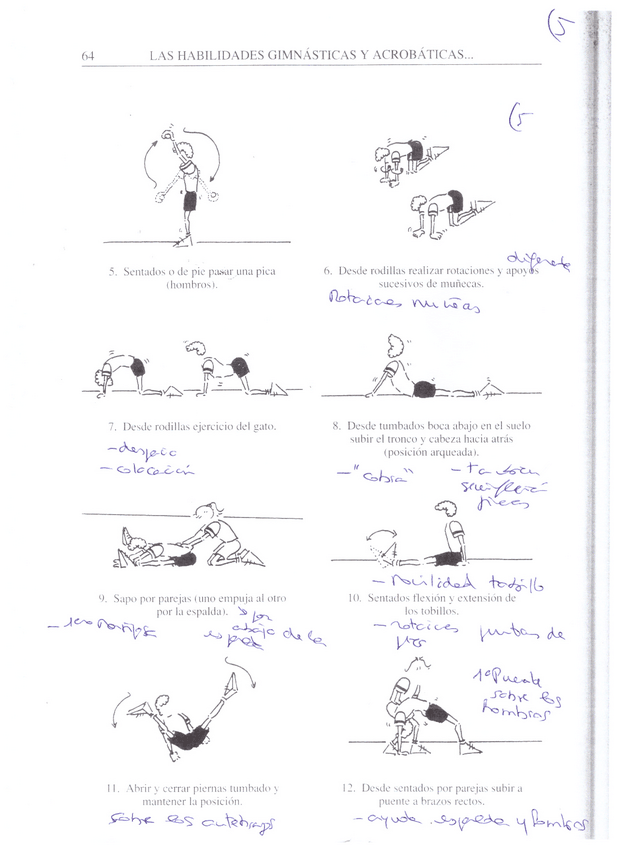 (5
64 LAS HABILIDADES GIMNÁSTICAS Y ACROBÁTICAS...
(5
5. Sentados o de pie pasar una pica
(hombros).
diferente
6. Desde rodillas realizar rotaciones y apoyos
sucesivos de muñecas.
Rotaciones muñecas
7. Desde rodillas ejercicio del gato.
- despacio
- colocación
8. Desde tumbados boca abajo en el suelo
subir el tronco y cabeza hacia atrás
(posición arqueada).
- "cobra"
9. Sapo por parejas (uno empuja al otro
por la espalda).
por
abajo de la
espalda
- movilidad tobillo
10. Sentados flexión y extensión de
los tobillos.
- rotaciones puntas de
pies
11. Abrir y cerrar piernas tumbado y
mantener la posición.
sobre los antebrazos
1º Puente
sobre los
hombros
12. Desde sentados por parejas subir a
puente a brazos rectos.
- ayuda espalda y hombros